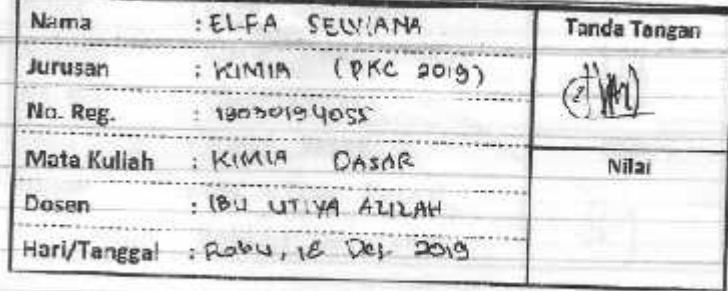 Nama : ELFA SELVIANA Tanda Tangan
Jurusan : KIMIA (PKC 2019)
No. Reg. :
Mata Kuliah : KIMIA DASAR Nilai
Dosen : IBU UTIYA AZIZAH
Hari/Tanggal : Rabu, 18 Des 2019